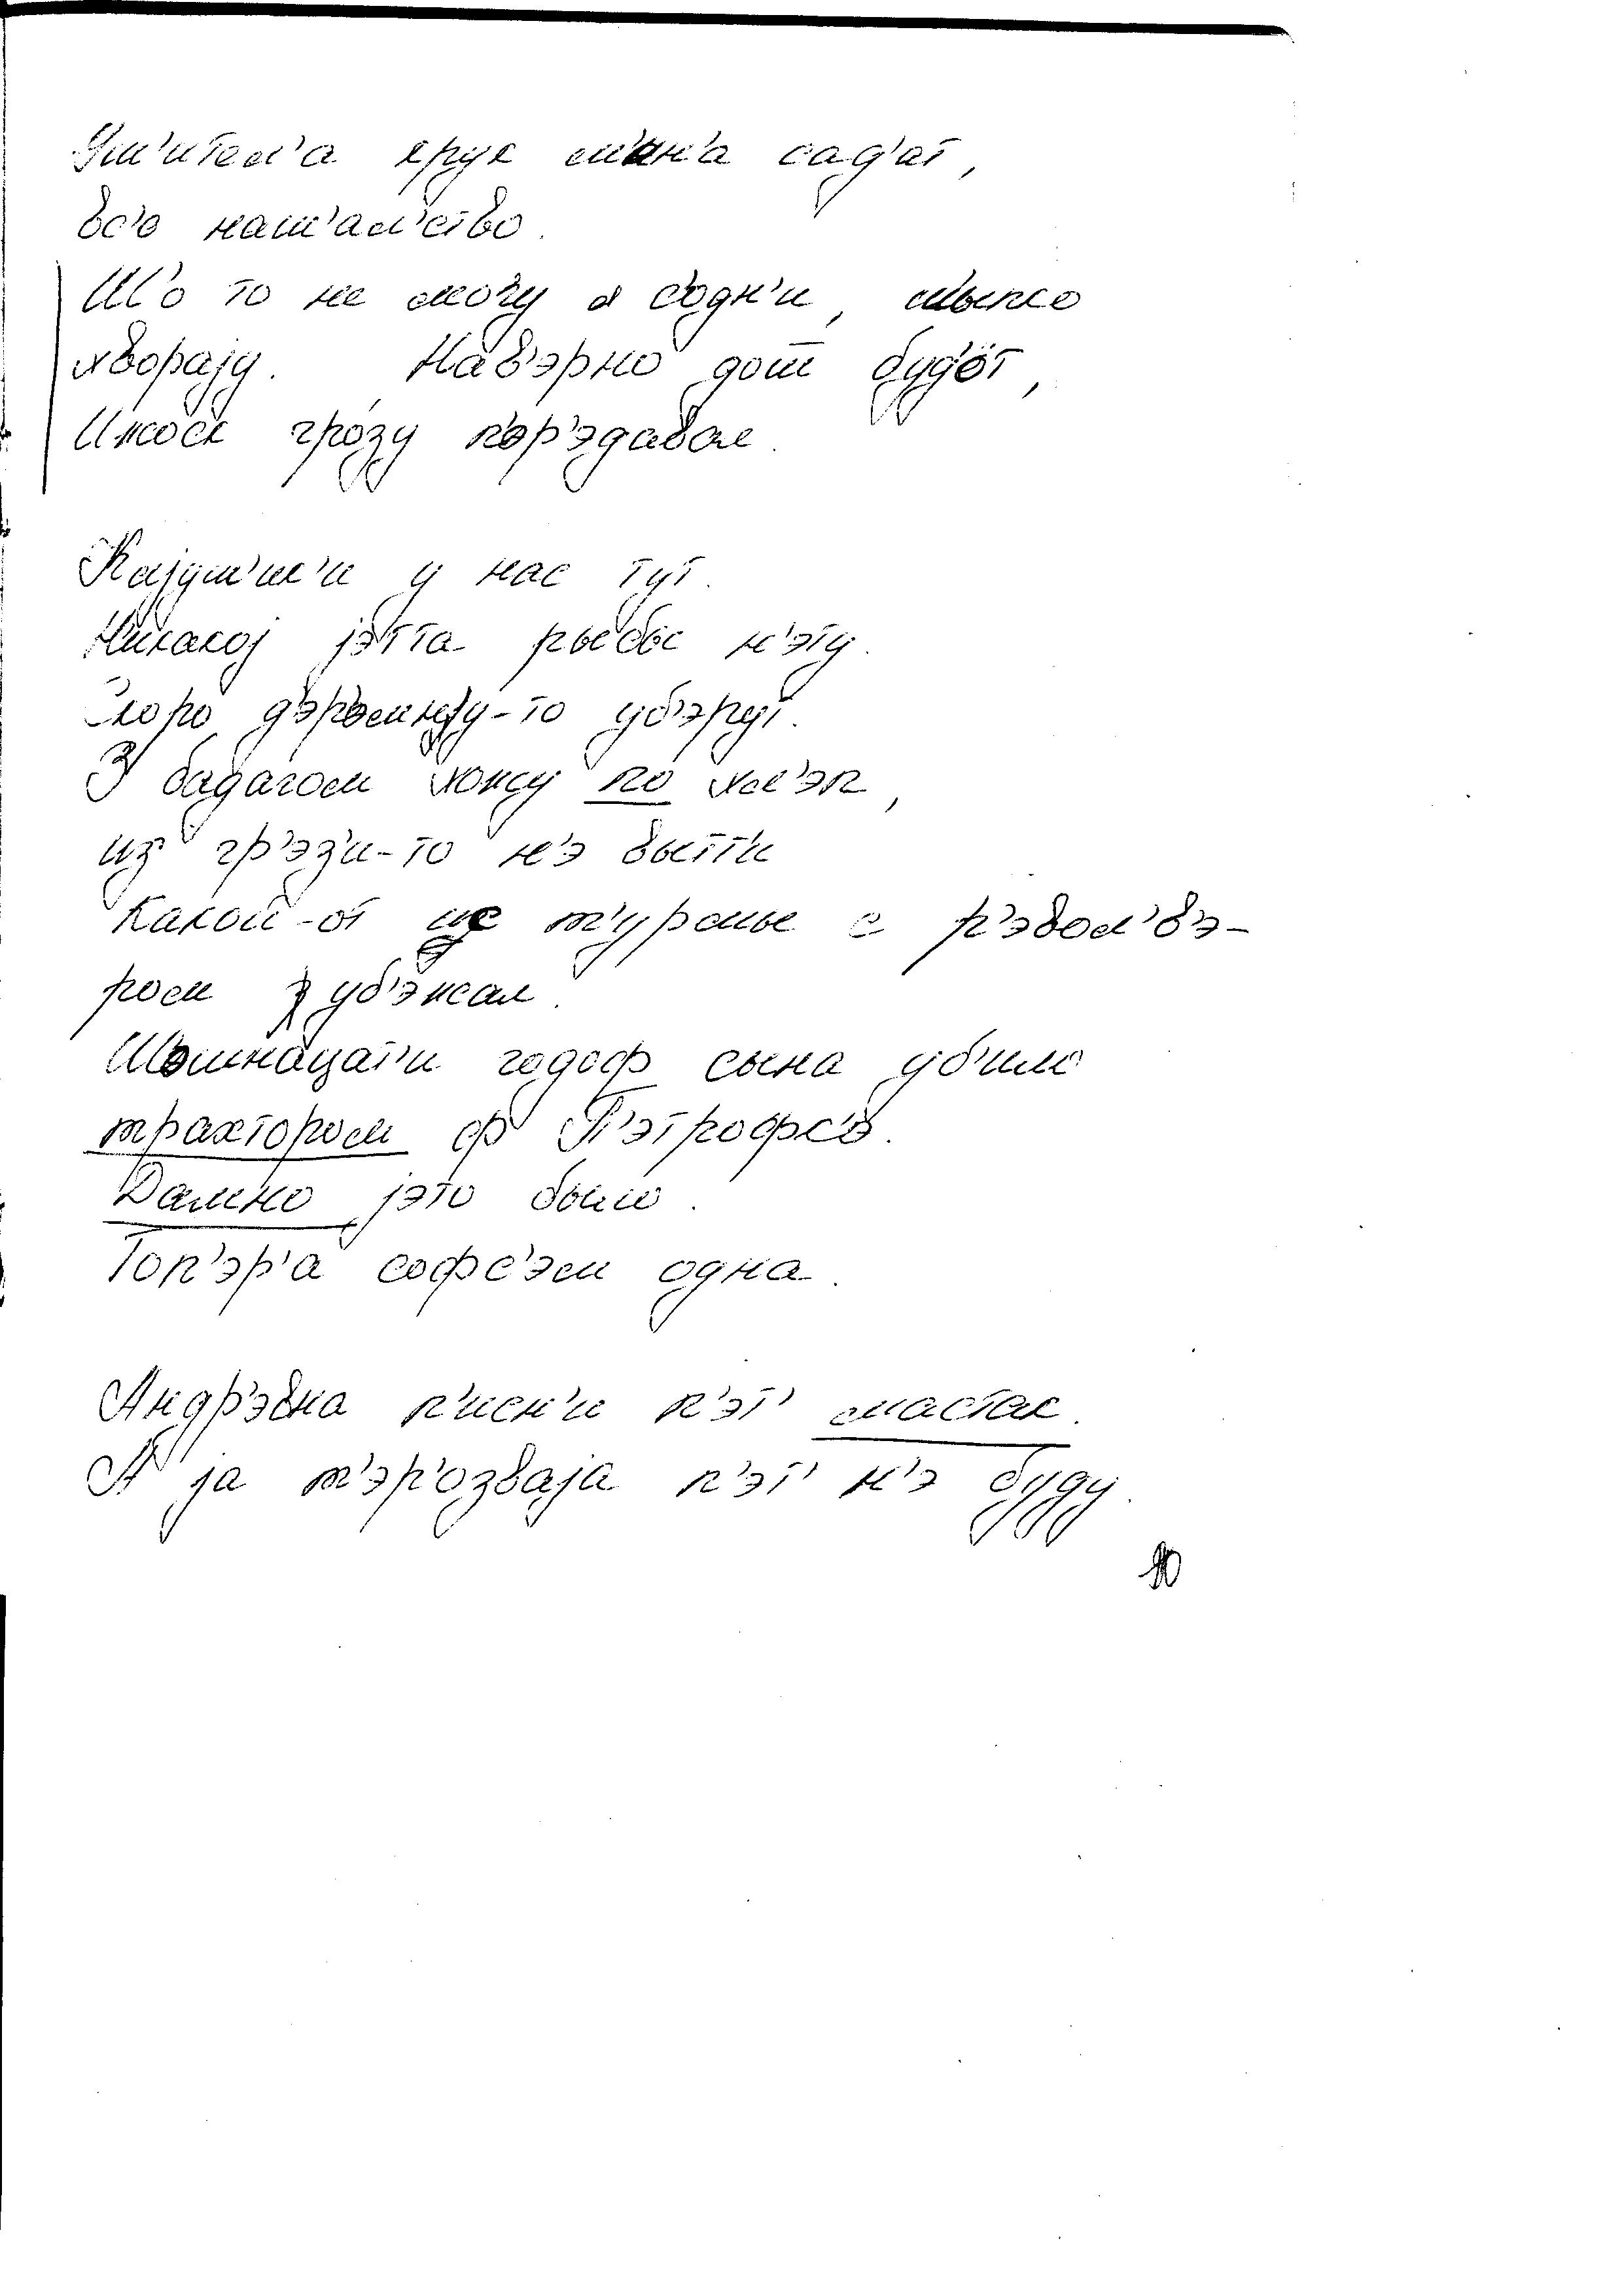 Уш'ител'а круг м'ин'а сад'ат,
вс'о нач'ал'ство.
Шо то не могу я содн'и, шыпко
хворају. Нав'эрно дош буд'от,
Инсок грозу п'ор'эдавал.
Кајуш'ш'и у нас тут.
Никакој јэтта рыбы н'эту.
Скоро д'эр'эвн'у-то уб'эрут.
З бадагом хожу по хл'эп,
из гр'эз'и-то н'э вытти
Какой-от ис т'урмы с р'эвол'вэ-
ром убэжал.
Шошнацат'и годоф сына уб'ило
трахтором ф П'этрофс'о.
Дамно јэто было.
Топ'эр'а софс'эм одна.
Андр'эвна п'исн'и п'эт' мастак.
А ја т'эр'озваја п'эт' н'э буду.